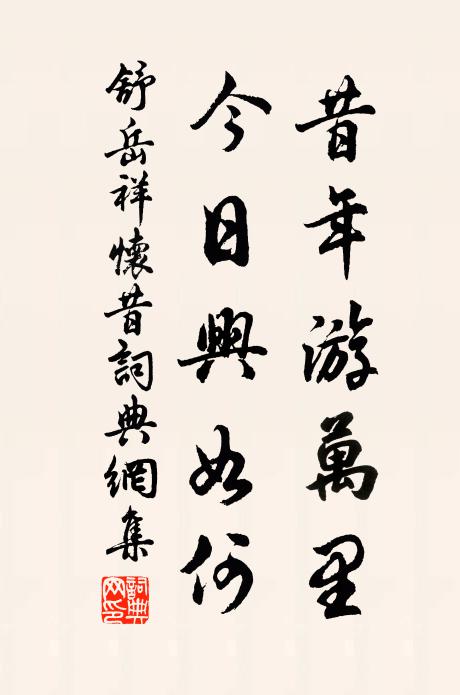 昔年游萬里
今日興如何
舒岳祥懷昔詞典網集
詞典网印